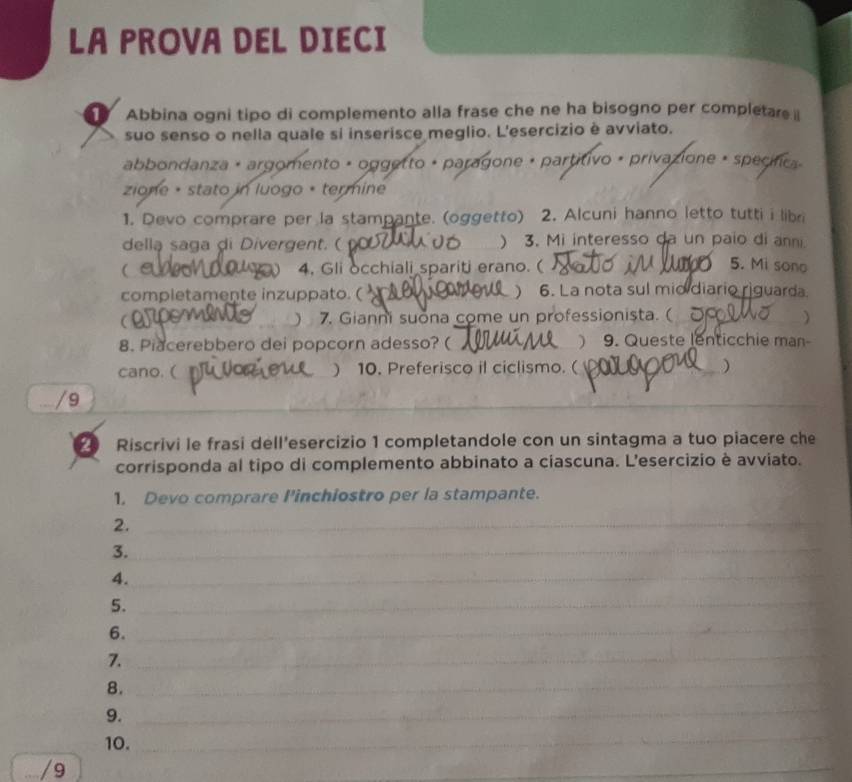 LA PROVA DEL DIECI
1 Abbina ogni tipo di complemento alla frase che ne ha bisogno per completare il
suo senso o nella quale si inserisce meglio. L'esercizio è avviato.
abbondanza • argomento • oggetto • paragone • partitivo • privazione • specifica-
zione • stato in luogo • termine
1. Devo comprare per la stampante. (oggetto) 2. Alcuni hanno letto tutti i libri
della saga di Divergent. ( partitivo ) 3. Mi interesso da un paio di anni.
( abbondanza ) 4. Gli occhiali spariti erano. ( stato in luogo ) 5. Mi sono
completamente inzuppato. ( specificazione ) 6. La nota sul mio diario riguarda.
( argomento ) 7. Gianni suona come un professionista. ( oggetto )
8. Piacerebbero dei popcorn adesso? ( termine ) 9. Queste lenticchie man-
cano. ( privazione ) 10. Preferisco il ciclismo. ( paragone )
.../9
2 Riscrivi le frasi dell'esercizio 1 completandole con un sintagma a tuo piacere che
corrisponda al tipo di complemento abbinato a ciascuna. L'esercizio è avviato.
1. Devo comprare l'inchiostro per la stampante.
2.
3.
4.
5.
6.
7.
8.
9.
10.
.../9